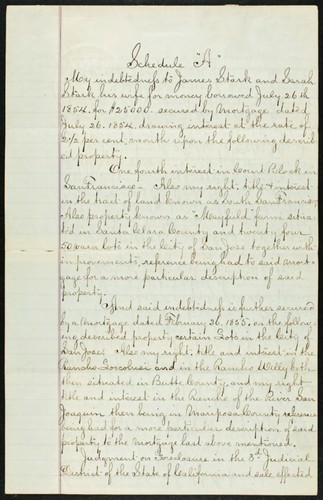 Schedule "A"
My indebtedness to James Stark and Sarah
Stark his wife for money borrowed July 26th
1854. for $25000. secured by Mortgage dated
July 26. 1854. drawing interest at the rate of
2½ per cent, month upon the following describ-
ed property.
One fourth interest in Court Block in
San Francisco - Also my right, title & interest
in the tract of land known as South San Francisco
Also property known as "Mayfield" farm situa-
ted in Santa Clara County and twenty four
50 vara lots in the City of San Jose together with
improvements, reference being had to said mort-
gage for a more particular description of said
property.
And said indebtedness is further secured
by a Mortgage dated February 26, 1855. on the follow-
ing described property certain Lots in the City of
San Jose. Also my right, title and interest in the
Rancho and in the Rancho Willy both
then situated in Butte County, and my right
title and interest in the Rancho of the River San
Joaquin then being in Mariposa County reference
being had for a more particular description of said
property to the Mortgage last above mentioned.
Judgment on Foreclosure in the 3rd Judicial
District of the State of California and sale effected